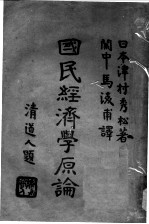 日本津村秀松著
閩中馬凌甫譯
國民經濟學原論
清道人題